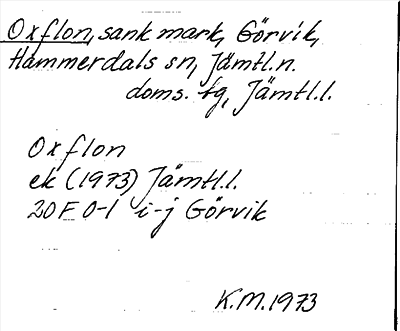 Oxflon, sank mark, Görvik,
Hammerdals sn, Jämtl. n.
doms. tg, Jämtl. l.
Oxflon
ek (1973) Jämtl. l.
20F 0-1 i-j Görvik
K.M. 1973